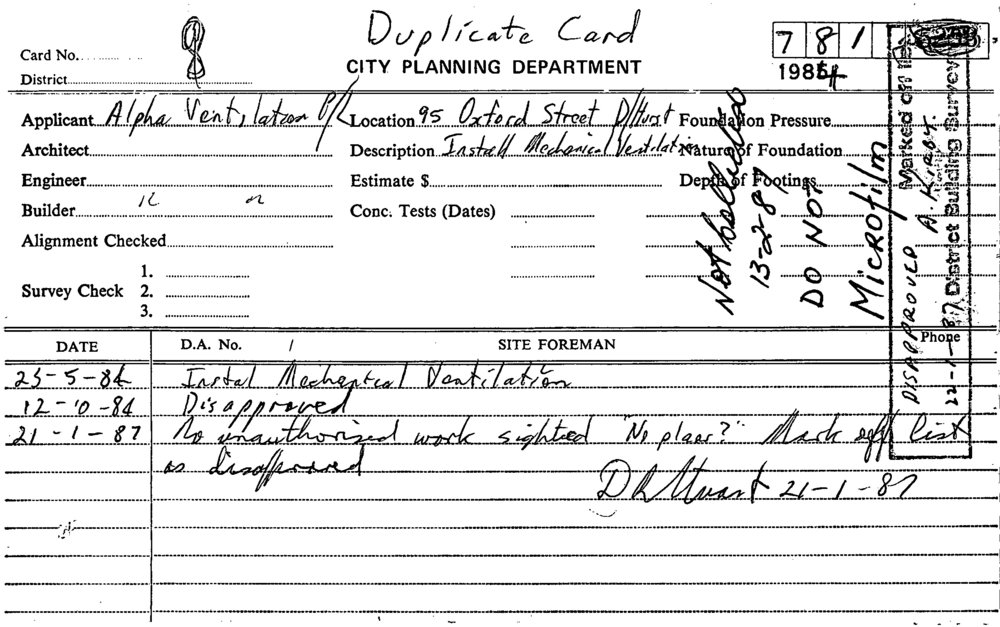 Duplicate Card
7 8 1
Card No.
CITY PLANNING DEPARTMENT
1984
District
Applicant Alpha Ventilation P/L Location 95 Oxford Street D/Hurst Foundation Pressure
Architect Description Install Mechanical Ventilation Nature of Foundation
Engineer Estimate $ Depth of Footings
Builder Conc. Tests (Dates)
Alignment Checked
Survey Check 1.
2.
3.
13-2-87
DO NOT
MICROFILM
Marked off list
DISAPPROVED A. KIRBY.
22-1-87 District Building Surveyor
Phone
DATE D.A. No. / SITE FOREMAN
25-5-84 Instal Mechanical Ventilation
12-10-84 Disapproved
21-1-87 No unauthorised work sighted "No plans?" Mark off list
as disapproved
D R Stuart 21-1-87